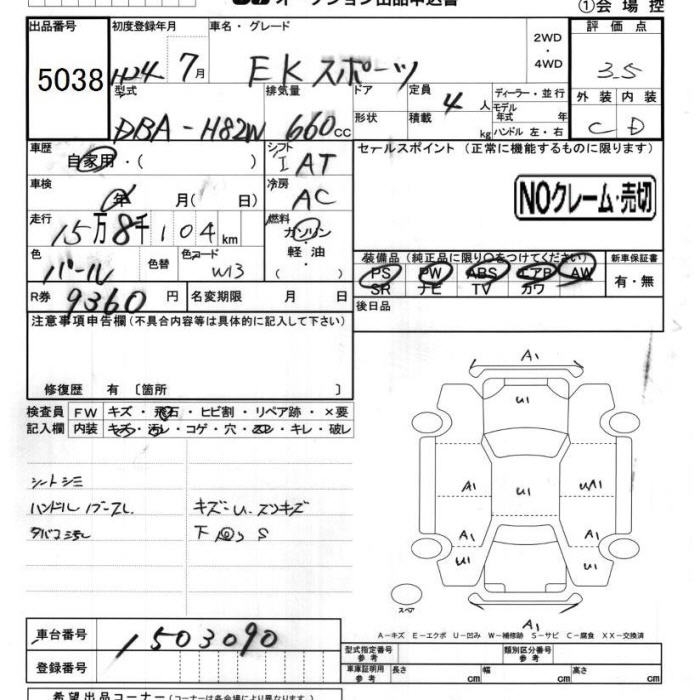 オークション出品申込書
①会場控
出品番号
5038
初度登録年月
H24 7月
車名・グレード
EKスポーツ
2WD
・
4WD
評価点
3.5
外装 内装
C D
型式
DBA-H82W
排気量
660cc
ドア
形状
定員
4人
積載
kg
ディーラー・並行
モデル
年式 年
ハンドル 左・右
車歴
自家用・( )
シフト
I AT
セールスポイント (正常に機能するものに限ります)
NOクレーム・売切
車検
年 月( 日)
冷房
AC
走行
15万8千104km
燃料
ガソリン
・
軽油
( )
色
パール
色替
色コード
W13
装備品(純正品に限り○をつけてください)
PS PW ABS エアB AW
SR ナビ TV カワ
新車保証書
有・無
R券
9360円
名変期限 月 日
後日品
注意事項申告欄(不具合内容等は具体的に記入して下さい)
修復歴 有 〔箇所 〕
検査員
記入欄
FW キズ・飛石・ヒビ割・リペア跡・×要
内装 キズ・汚レ・コゲ・穴・スレ・キレ・破レ
シートシミ
ハンドル
タバコ
キズ
下 S
A1
U1
A1
U1
A1
A1
U1
A1
U1
A1
スペア
A-キズ E-エクボ U-凹み W-補修跡 S-サビ C-腐食 XX-交換済
車台番号
1503090
登録番号
型式指定番号
参考
類別区分番号
参考
車庫証明用
参考
長さ cm
幅 cm
高さ cm
希望出品コーナー(コーナーは各会場により異なります。)